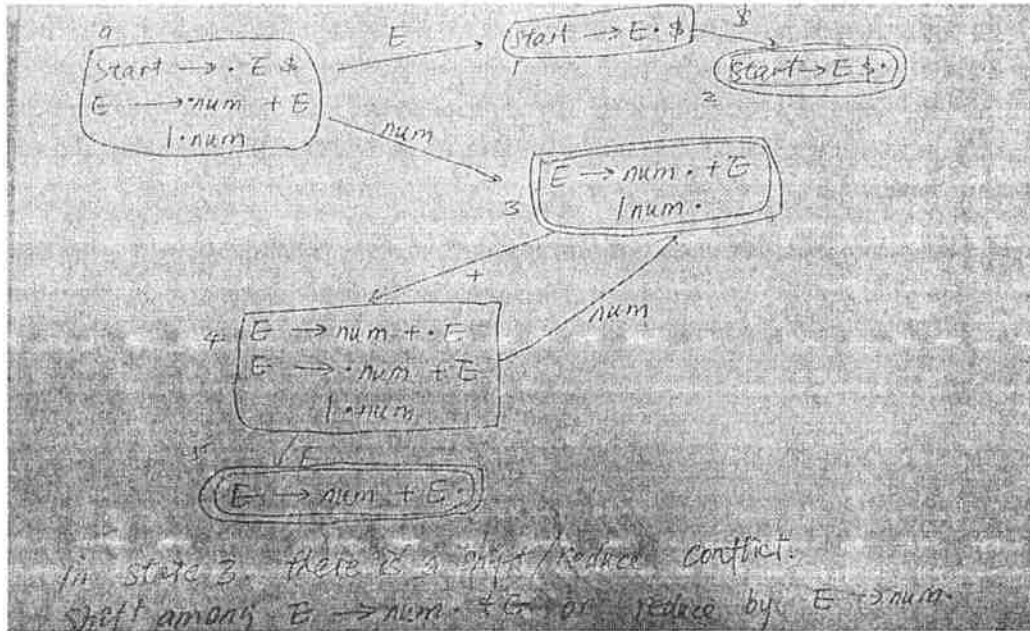 9
start → · E $
E → ·num + E
| ·num
E
start → E · $
1
$
start → E $ ·
2
num
E → num · + E
| num ·
3
+
num
4
E → num + · E
E → · num + E
| · num
5
E
E → num + E ·
in state 3. there is a shift/reduce conflict.
shift among E → num · + E or reduce by E → num ·